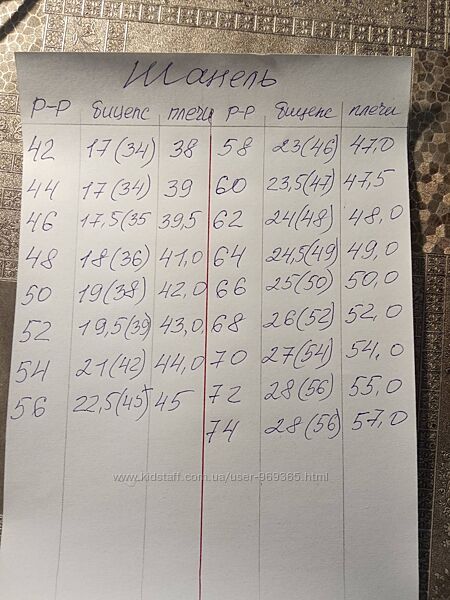 Шанель
Р-Р бицепс плечи Р-Р бицепс плечи
42 17(34) 38 58 23(46) 47,0
44 17(34) 39 60 23,5(47) 47,5
46 17,5(35 39,5 62 24(48) 48,0
48 18(36) 41,0 64 24,5(49) 49,0
50 19(38) 42,0 66 25(50) 50,0
52 19,5(39) 43,0 68 26(52) 52,0
54 21(42) 44,0 70 27(54) 54,0
56 22,5(45) 45 72 28(56) 55,0
74 28(56) 57,0
www.kidstaff.com.ua/user-969365.html